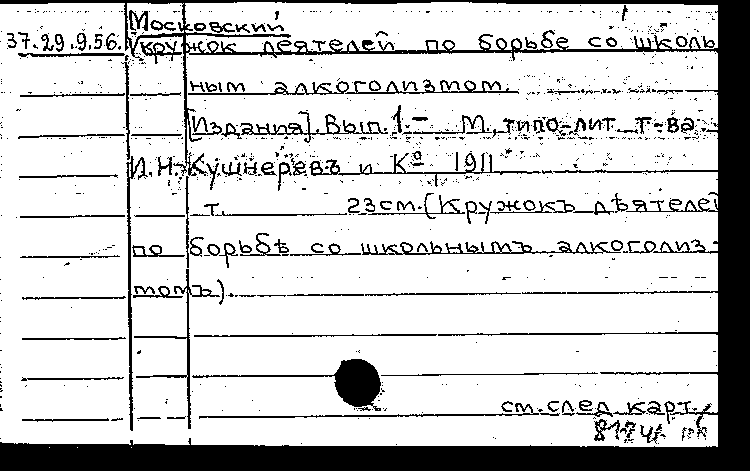 Московский
37.29.9.56. кружок деятелей по борьбе со школь
ным алкоголизмом.
[Издания]. Вып. 1.– М., типо-лит. т-ва
И.Н. Кушнеревъ и Кº 1911
т. 23см. (Кружокъ дѣятелей
по борьбѣ со школьнымъ алкоголиз-
момъ).
см. след. карт.